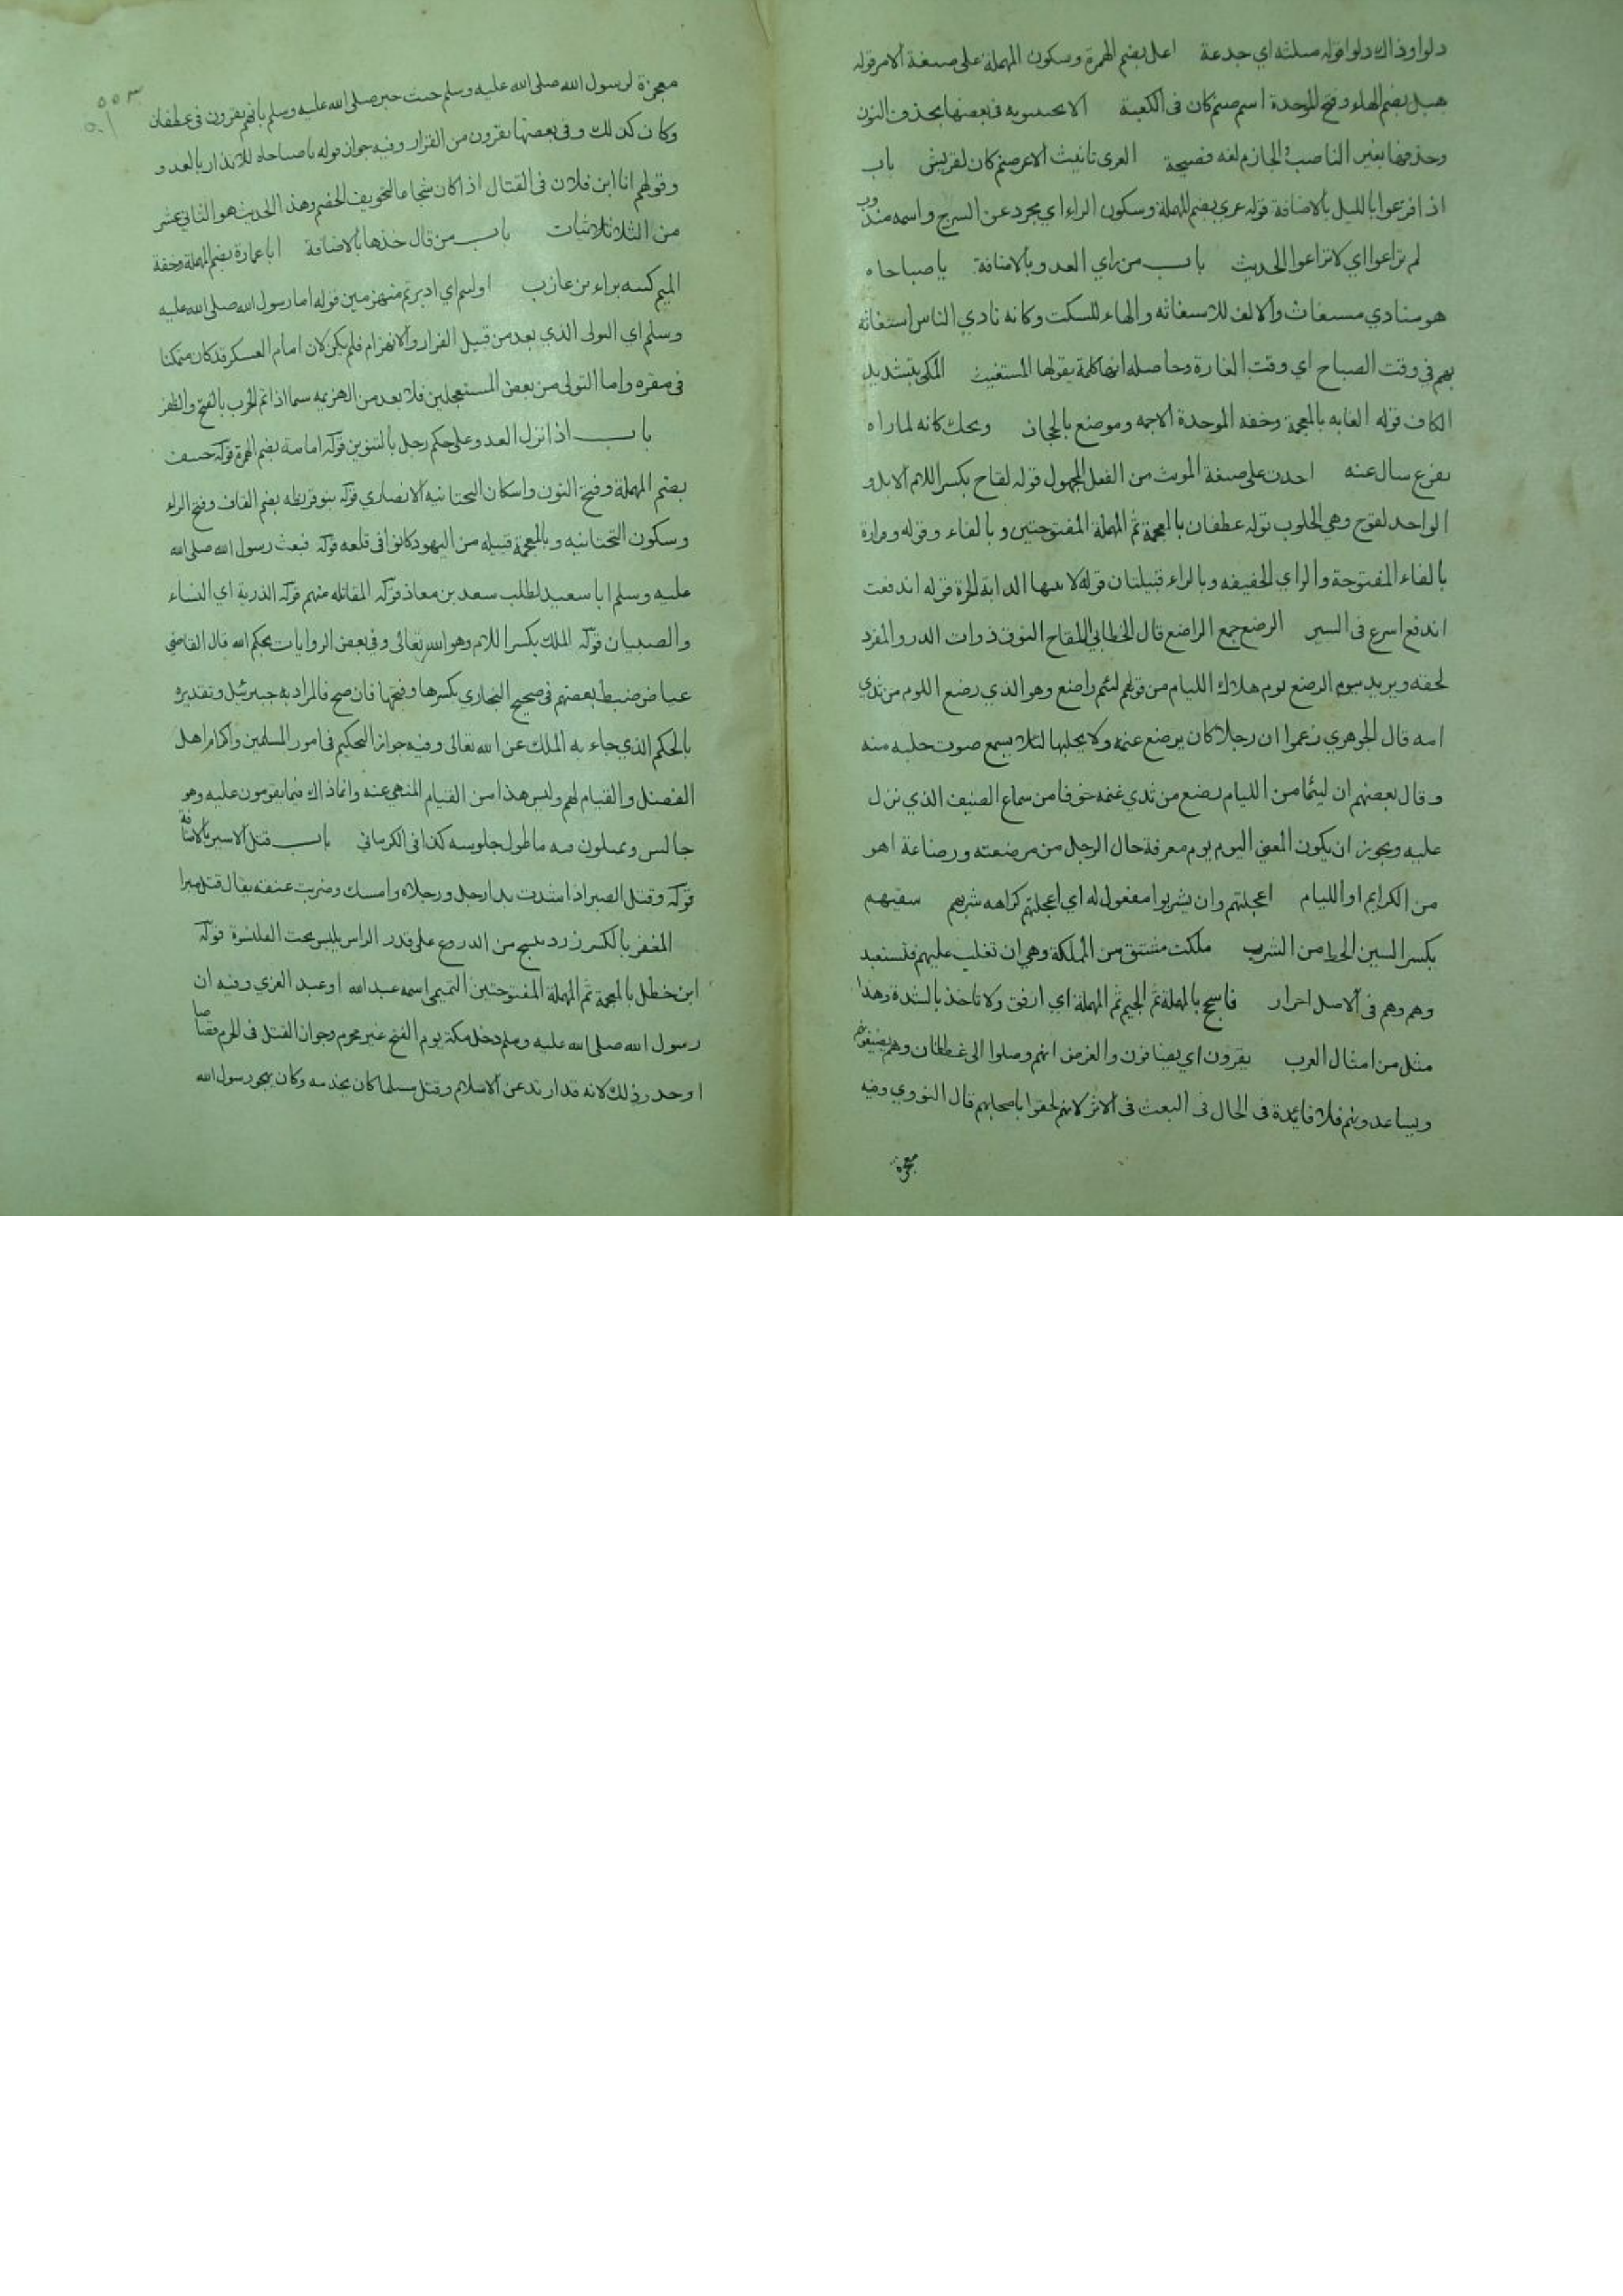 دلوا وذاك دلوا قوله مثلثه اي جدعة اعل بضم الهمزة وسكون المهملة على صيغة الامر قوله
هبل بضم الهاء وفتح الموحدة اسم صنم كان فى الكعبة الا تجيبوبه فى بعضها بحذف النون
وحذفها بغير الناصب والجازم لغه فصيحة العزى تانيث الاعز صنم كان لقريش باب
اذا فزعوا بالليل بالاضافة قوله عري بضم المهملة وسكون الراء اي مجرد عن السرج واسمه مندوب
لم تراعوا اي لا تراعوا الحديث باب من راي العدو بالاضافة يا صباحاه
هو منادي مستغاث والالف للاستغاثه والهاء للسكت وكانه نادي الناس استغاثه
بهم في وقت الصباح اي وقت الغارة وحاصله انها كلمة يقولها المستغيث المكى بتشديد
الكاف قوله الغابه بالمعجمة وخفه الموحدة الاجمه وموضع بالحجاز ويحك كانه لما راه
يفزع سال عنه اخذت على صيغة المونث من الفعل المجهول قوله لقاح بكسر اللام الابل و
الواحد لقوح وهي الحلوب قوله غطفان بالمعجمة ثم المهملة المفتوحتين وبالفاء وقوله وفزارة
بالفاء المفتوحة والزاي الخفيفه وبالراء قبيلتان قوله لابتيها اللابة الحرة قوله اندفعت
اندفع اسرع فى السير الرضع جمع الراضع قال الخطابي اللقاح النوق ذوات الدر والمفرد
لحقه ويريد بيوم الرضع يوم هلاك الليام من قولهم لئيم راضع وهو الذي رضع اللوم من ثدي
امه قال الجوهري زعموا ان رجلا كان يرضع غنمه ولا يحلبها لئلا يسمع صوت حلبه منه
وقال بعضهم ان لئيما من الليام رضع من ثدي غنمه خوفا من سماع الضيف الذي نزل
عليه ويجوز ان يكون المعنى اليوم يوم معرفة حال الرجل من مرضعته ورضاعة اهو
من الكرايم او الليام اعجلتهم وان يشربوا مفعول له اي اعجلتهم كراهه شربهم سقيهم
بكسر السين الحظ من الشرب ملكت مشتق من المملكة وهي ان تغلب عليهم فتستعبد
وهم وهم فى الاصل احرار فاسجح بالمهملة ثم الجيم ثم المهملة اي ارفق ولا تاخذ بالشدة وهذا
مثل من امثال العرب يقرون اي يضافون والغرض انهم وصلوا الى غطفان وهم يضيفونهم
ويساعدونهم فلا فائدة فى الحال فى البعث فى الاثر لانهم لحقوا باصحابهم قال النووي وفيه
معجزة
معجزة لرسول الله صلى الله عليه وسلم حيث خبر صلى الله عليه وسلم بانهم يقرون فى غطفان
وكان كذلك وفى بعضها يفرون من الفرار وفيه جواز قوله يا صباحاه للانذار بالعدو و
وقولهم انا ابن فلان فى القتال اذا كان شجاعا لتخويف الخصم وهذا الحديث هو الثاني عشر
من الثلاثيات باب من قال خذها بالاضافة ابا عمارة بضم المهملة وخفة
الميم كنيه براء بن عازب اوليتم اي ادبرتم منهزمين قوله اما رسول الله صلى الله عليه
وسلم اي التولى الذي يعد من قبيل الفرار والانهزام فلم يكن لان امام العسكر قد كان متمكنا
فى مقره واما التولى من بعض المستعجلين فلا يعد من الهزيمه سيما اذا تم الحرب بالفتح والظفر
باب اذا نزل العدو على حكم رجل بالتنوين قوله امامة بضم الهمزة قوله حنيف
بضم المهملة وفتح النون واسكان التحتانيه الانصاري قوله بنو قريظه بضم القاف وفتح الراء
وسكون التحتانيه وبالمعجمة قبيله من اليهود كانوا فى قلعه قوله فبعث رسول الله صلى الله
عليه وسلم ابا سعيد لطلب سعد بن معاذ قوله المقاتله منهم قوله الذرية اي النساء
والصبيان قوله الملك بكسر اللام وهو الله تعالى وفي بعض الروايات بحكم الله قال القاضي
عياض ضبط بعضهم فى صحيح البخاري بكسرها وفتحها فان صح فالمراد به جبرئيل وتقديره
بالحكم الذي جاء به الملك عن الله تعالى وفيه جواز التحكيم فى امور المسلمين واكرام اهل
الفضل والقيام لهم وليس هذا من القيام المنهي عنه وانما ذاك فيما يقومون عليه وهو
جالس ويمثلون فيه ما طول جلوسه كذا فى الكرماني باب قتل الاسير بالاضافة
قوله وقتل الصبر اذا شدت يدا رجل ورجلاه وامسك وضربت عنقه يقال قتل صبرا
المغفر بالكسر زرد ينسج من الدرع على قدر الراس يلبس تحت القلنسوة قوله
ابن خطل بالمعجمة ثم المهملة المفتوحتين التميمي اسمه عبد الله او عبد العزي وفيه ان
رسول الله صلى الله عليه وسلم دخل مكة يوم الفتح غير محرم وجواز القتل فى الحرم قصاصا
او حد وذلك لانه قد ارتد عن الاسلام وقتل مسلما كان يخدمه وكان يهجو رسول الله